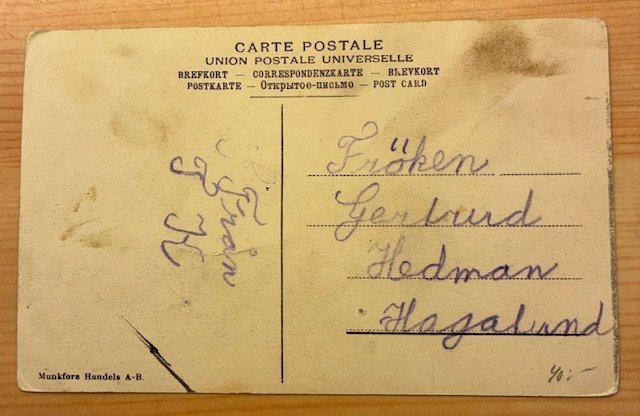 CARTE POSTALE
UNION POSTALE UNIVERSELLE
BREFKORT — CORRESPONDENZKARTE — BLEVKORT
POSTKARTE — Открытое-письмо — POST CARD
Från
F K
Fröken
Gertrud
Hedman
Hagalund
Munkfors Handels A-B.
40:-